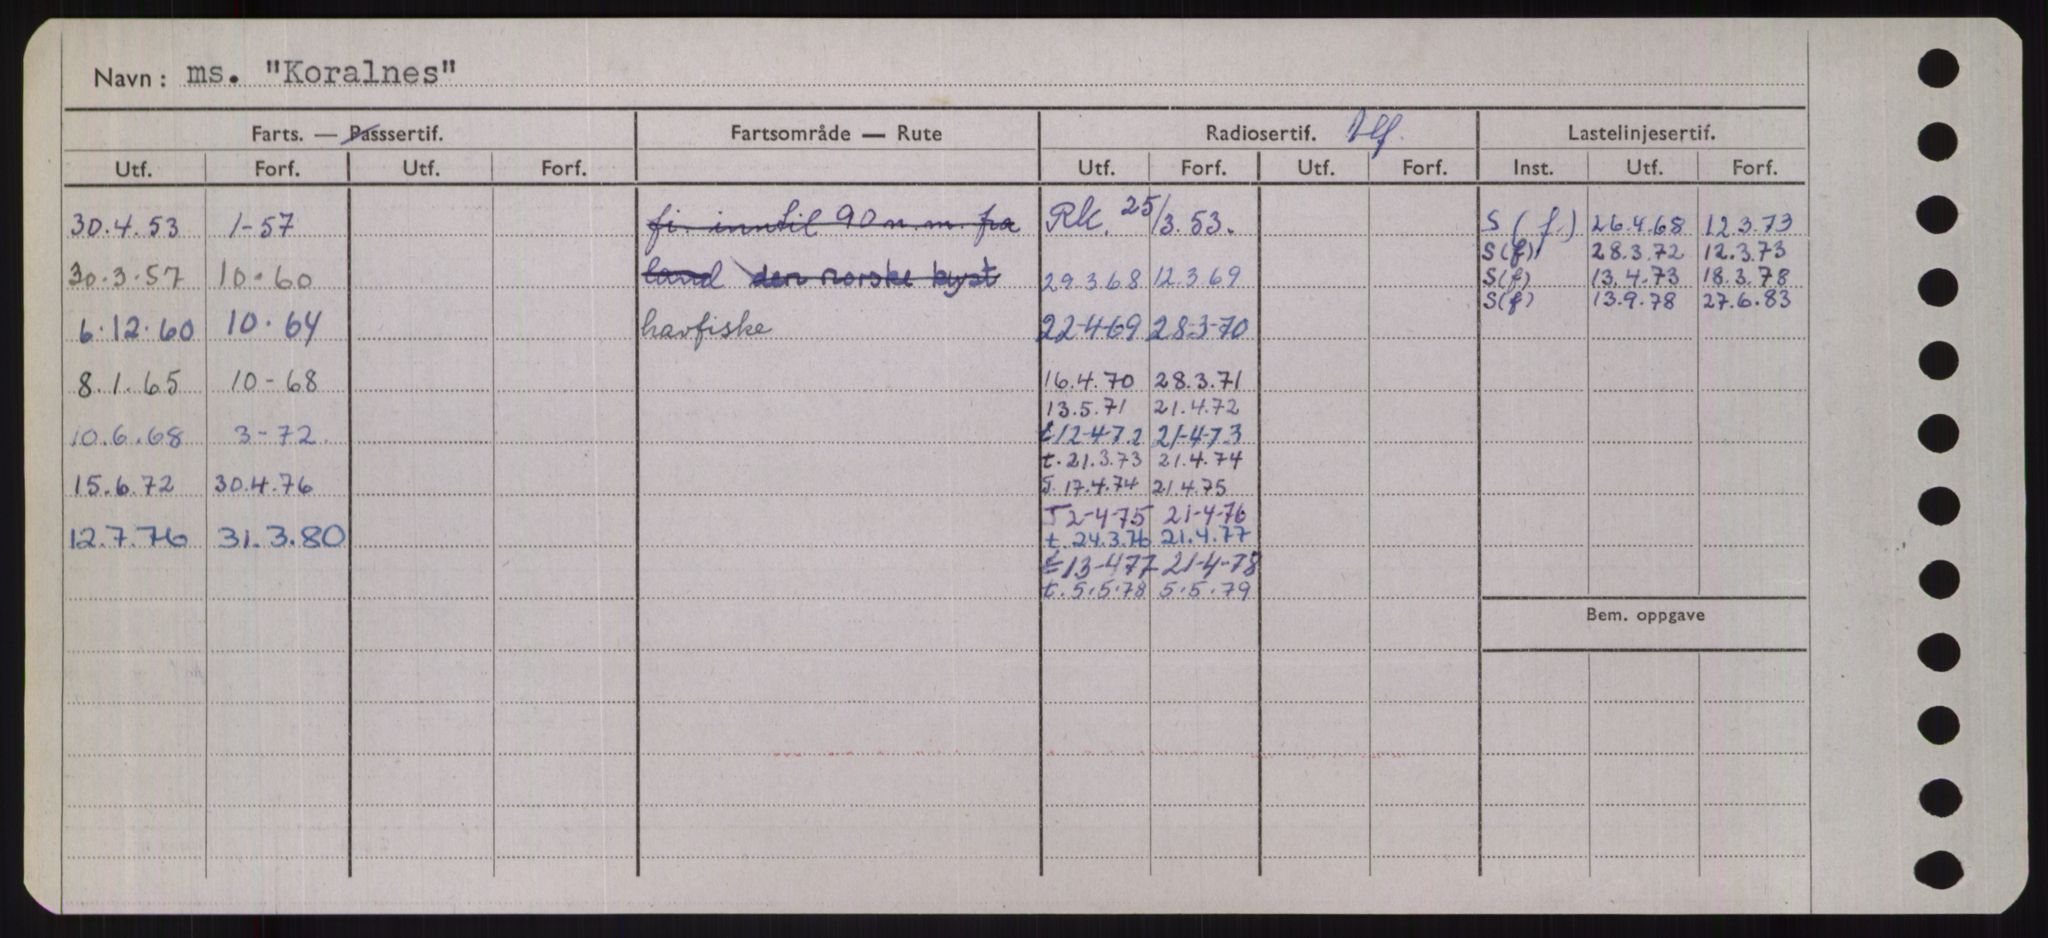 Navn : ms. "Koralnes"
Farts. — Passsertif. Fartsområde — Rute Radiosertif. Tlf. Lastelinjesertif.
Utf. Forf. Utf. Forf. Utf. Forf. Utf. Forf. Inst. Utf. Forf.
30.4.53 1-57 fi. inntil 90 n.m. fra Rk. 25/3.53. S (f.) 26.4.68 12.3.73
S(f) 28.3.72 12.3.73
30.3.57 10.60 land den norske kyst 29.3.68 12.3.69 S(f) 13.4.73 18.3.78
S(f) 13.9.78 27.6.83
6.12.60 10.64 havfiske 22-4-69 28-3-70
8.1.65 10-68 16.4.70 28.3.71
13.5.71 21.4.72
10.6.68 3-72. t12-4-72 21-4-73
t.21.3.73 21.4.74
15.6.72 30.4.76 T.17.4.74 21.4.75
T2-4-75 21-4-76
12.7.76 31.3.80 t.24.3.76 21.4.77
t13-4-77 21-4-78
t.5.5.78 5.5.79
Bem. oppgave